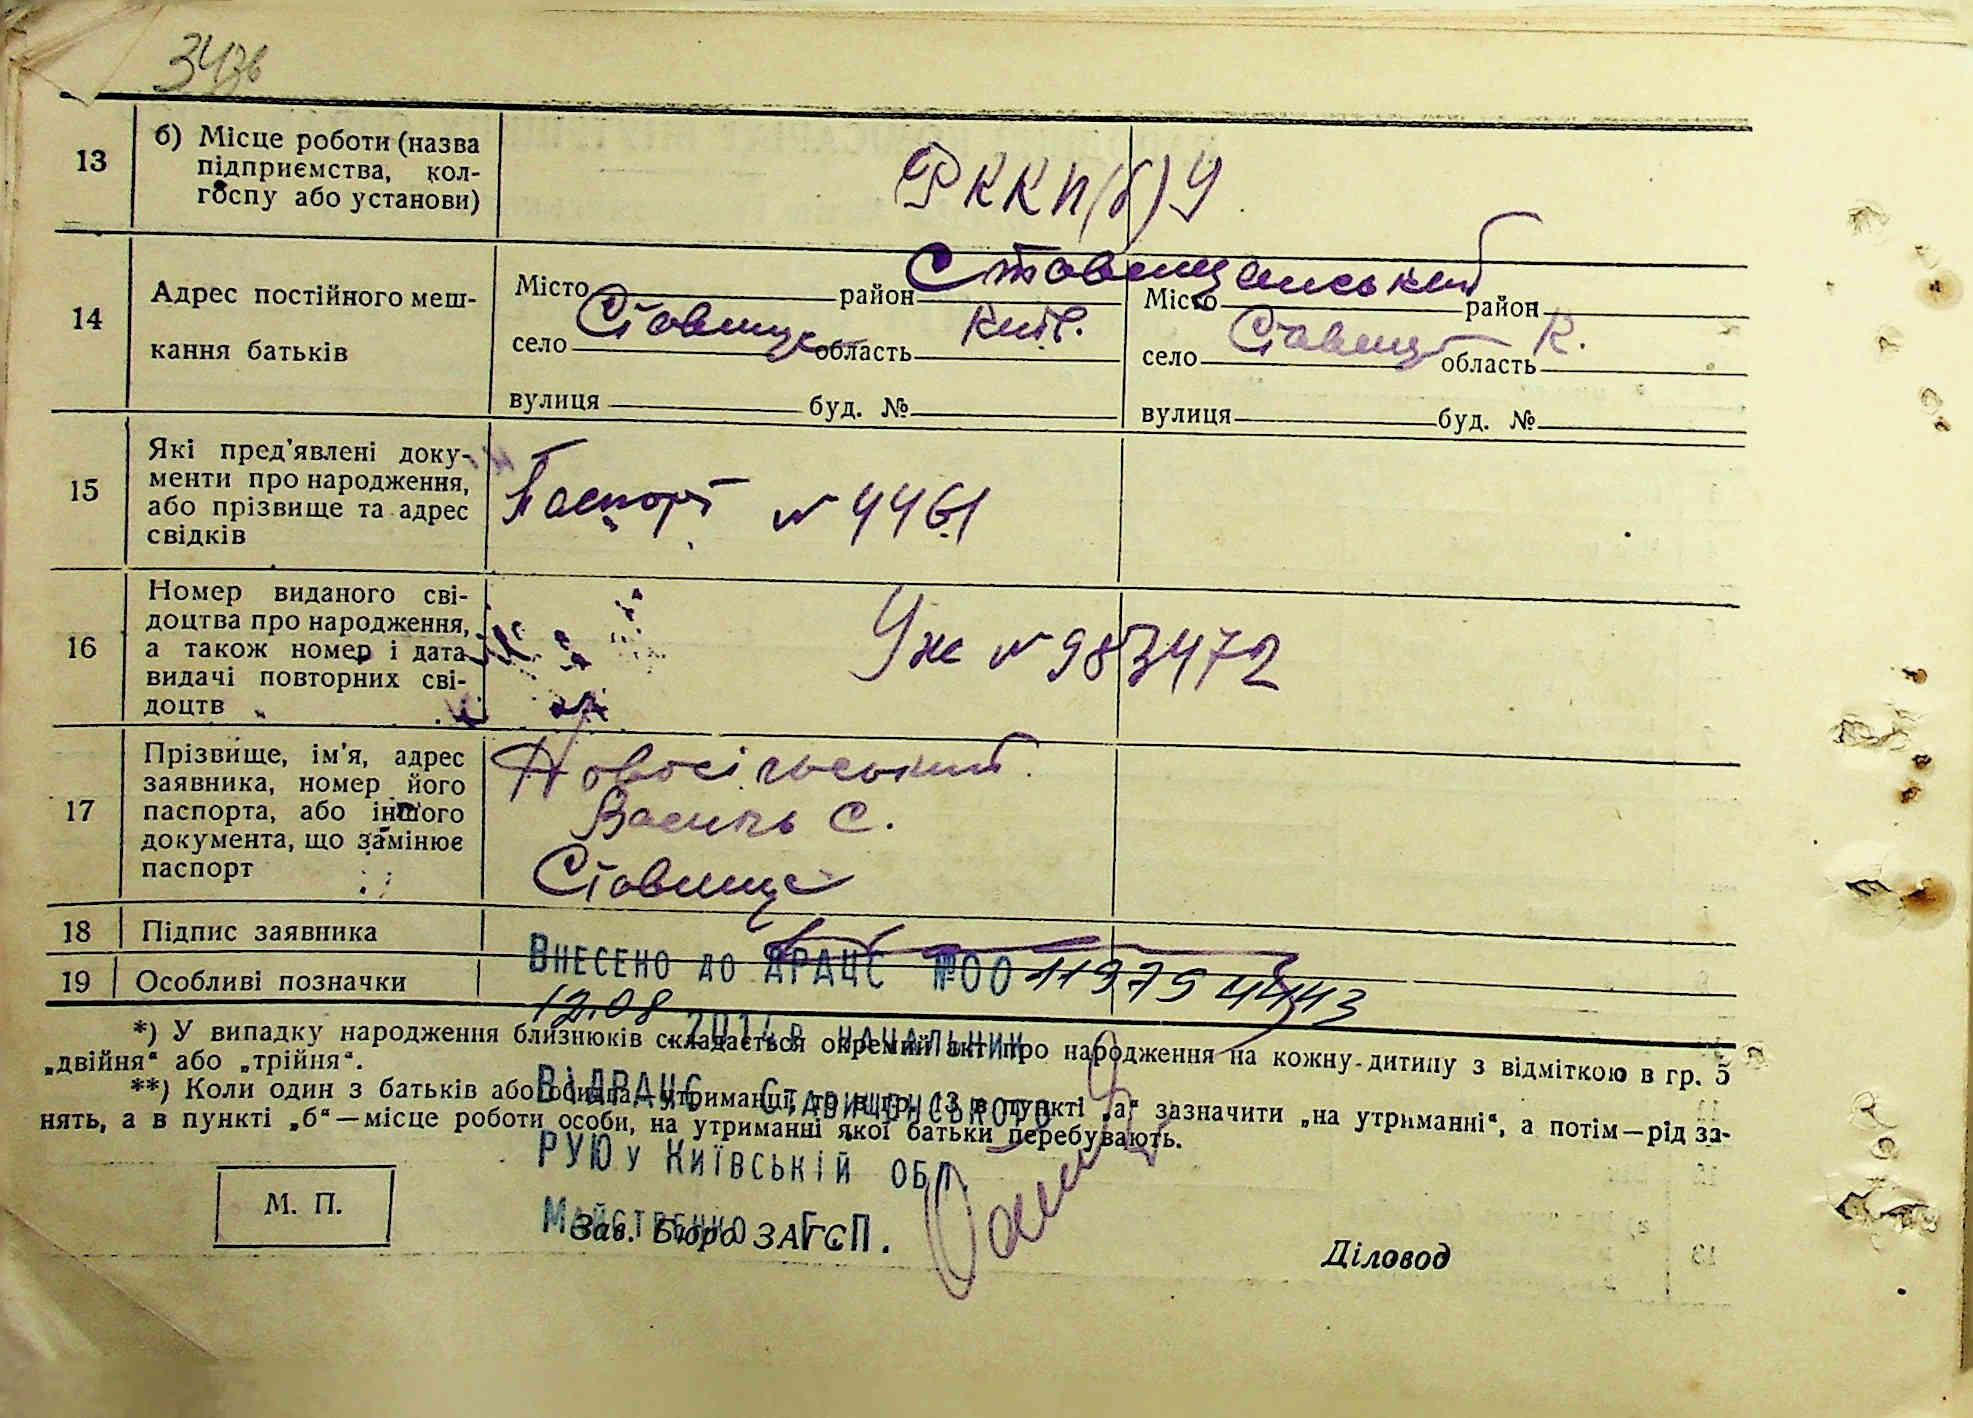 343в
13
б) Місце роботи (назва
підприємства, кол-
госпу або установи)
РККП(б)У
14
Адрес постійного меш-
кання батьків
Ставищанський
Місто район
село Ставище область Київ.
вулиця буд. №
Місто район
село Ставище область К.
вулиця буд. №
15
Які пред'явлені доку-
менти про народження,
або прізвище та адрес
свідків
Паспорт № 4461
16
Номер виданого сві-
доцтва про народження,
а також номер і дата
видачі повторних сві-
доцтв
Уж № 983472
17
Прізвище, ім'я, адрес
заявника, номер його
паспорта, або іншого
документа, що замінює
паспорт
Новосільський
Василь С.
Ставище
18 Підпис заявника
19 Особливі позначки
Внесено до ДРАЦС №00119754443
12.08.2014р начальник
ВІДРАЦС Ставищенського
РУЮ у Київській обл.
Майстренко Г.П.
*) У випадку народження близнюків складається окремий акт про народження на кожну дитину з відміткою в гр. 5
„двійня“ або „трійня“.
**) Коли один з батьків або обидва—утриманці, то в гр. 13 в пункті „а“ зазначити „на утриманні“, а потім—рід за-
нять, а в пункті „б“—місце роботи особи, на утриманні якої батьки перебувають.
М. П.
Зав. Бюро ЗАГС
Діловод